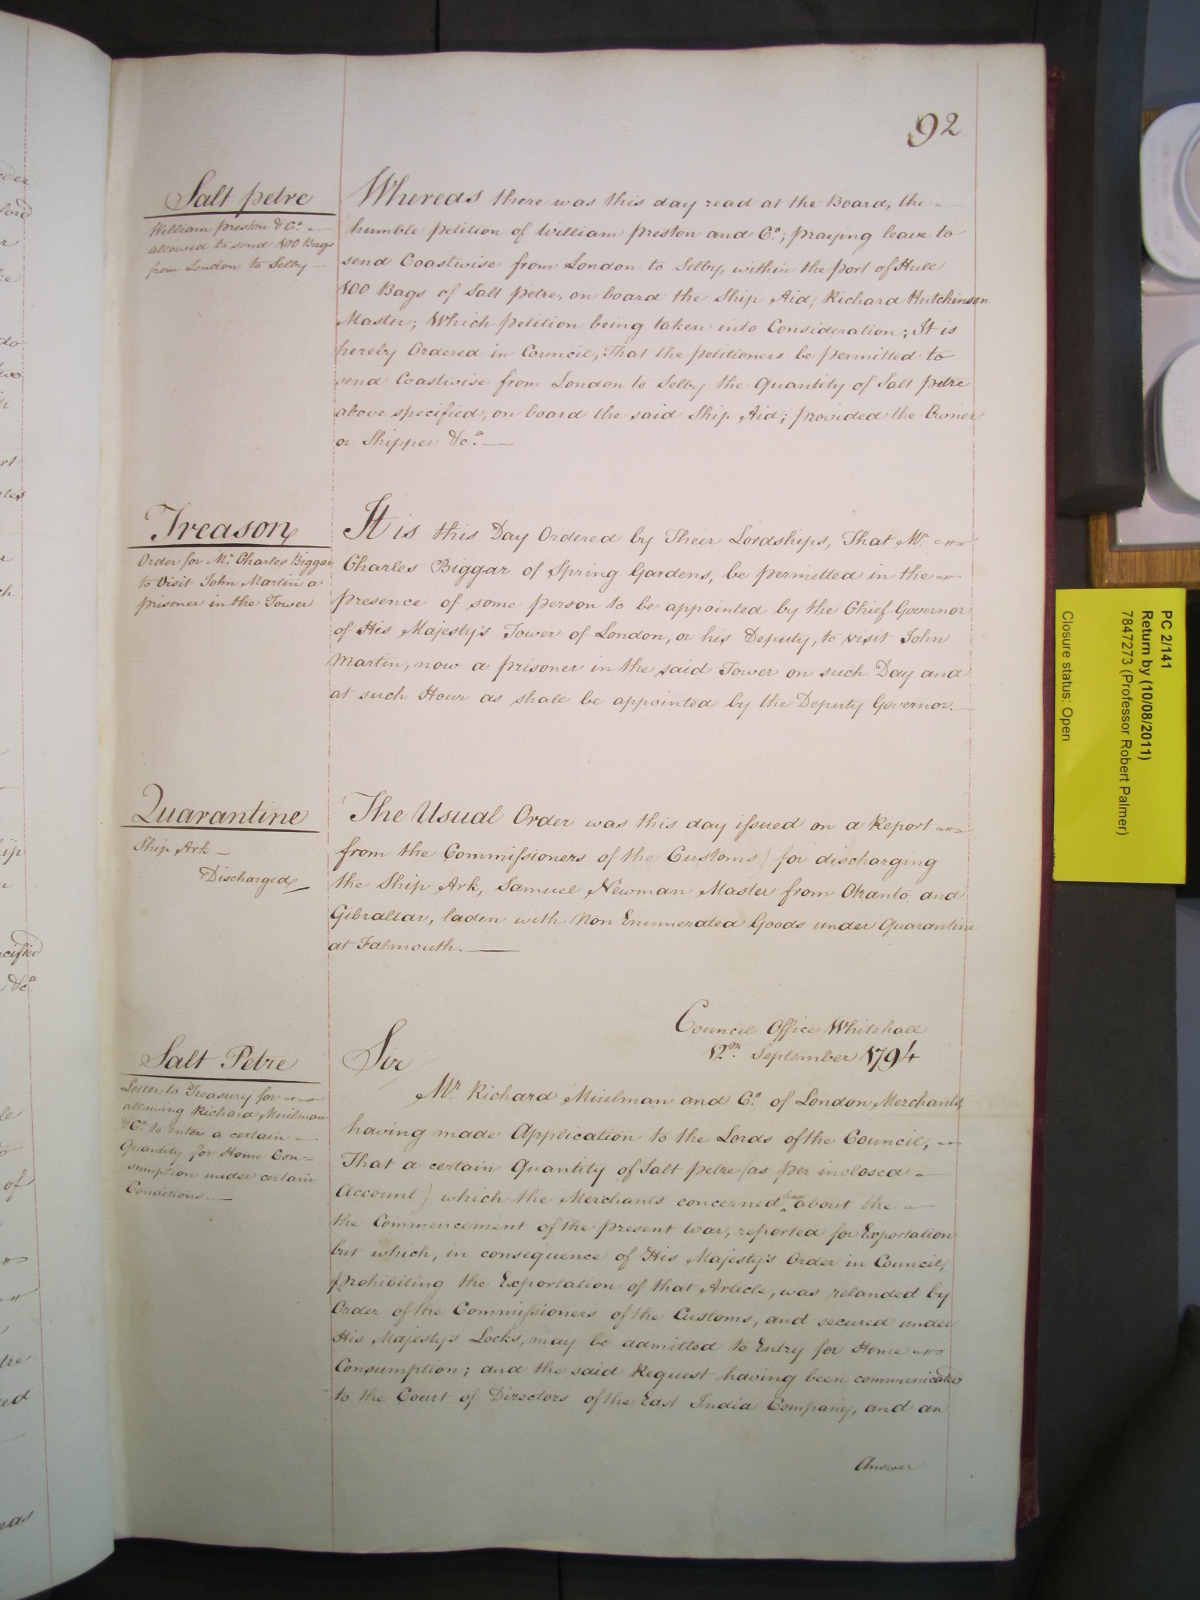 92
Salt petre
William Preston & Co.
allowed to send 100 Bags
from London to Selby
Whereas there was this day read at the Board, the
humble petition of William Preston and Co.; praying leave to
send Coastwise from London to Selby, within the port of Hull
100 Bags of Salt Petre, on board the Ship Aid, Richard Hutchinson
Master; Which petition being taken into Consideration; It is
hereby Ordered in Council, That the petitioners be permitted to
send Coastwise from London to Selby the Quantity of Salt petre
above specified, on board the said Ship Aid; provided the Owner
or Shipper &ca.
Treason
Order for Mr. Charles Biggar
to Visit John Martin a
prisoner in the Tower
It is this Day Ordered by Their Lordships, That Mr.
Charles Biggar of Spring Gardens, be permitted in the
presence of some person to be appointed by the Chief Governor
of His Majesty's Tower of London, or his Deputy, to visit John
Martin, now a prisoner in the said Tower on such Day and
at such Hour as shall be appointed by the Deputy Governor.
Quarantine
Ship Ark
Discharged
The Usual Order was this day issued on a Report
from the Commissioners of the Customs) for discharging
the Ship Ark, Samuel Newman Master from and
Gibraltar, laden with Non Enumerated Goods under Quarantine
at Falmouth.
Council Office Whitehall
12th. September 1794
Salt Petre
Letter to Treasury for
allowing Richard Muilman
&Co. to enter a certain
Quantity for Home Con=
sumption under certain
Conditions.
Sir
Mr. Richard Muilman and Co. of London Merchants
having made Application to the Lords of the Council,
That a certain Quantity of Salt petre (as per inclosed
Account) which the Merchants concerned, had about the
the Commencement of the present War, reported for Exportation
but which, in consequence of His Majesty's Order in Council,
prohibiting the Exportation of that Article, was relanded by
Order of the Commissioners of the Customs, and secured under
His Majesty's Locks, may be admitted to Entry for Home
Consumption; and the said Request having been communicated
to the Court of Directors of the East India Company, and an
Answer
PC 2/141
Return by (10/08/2011)
7847273 (Professor Robert Palmer)
Closure status: Open